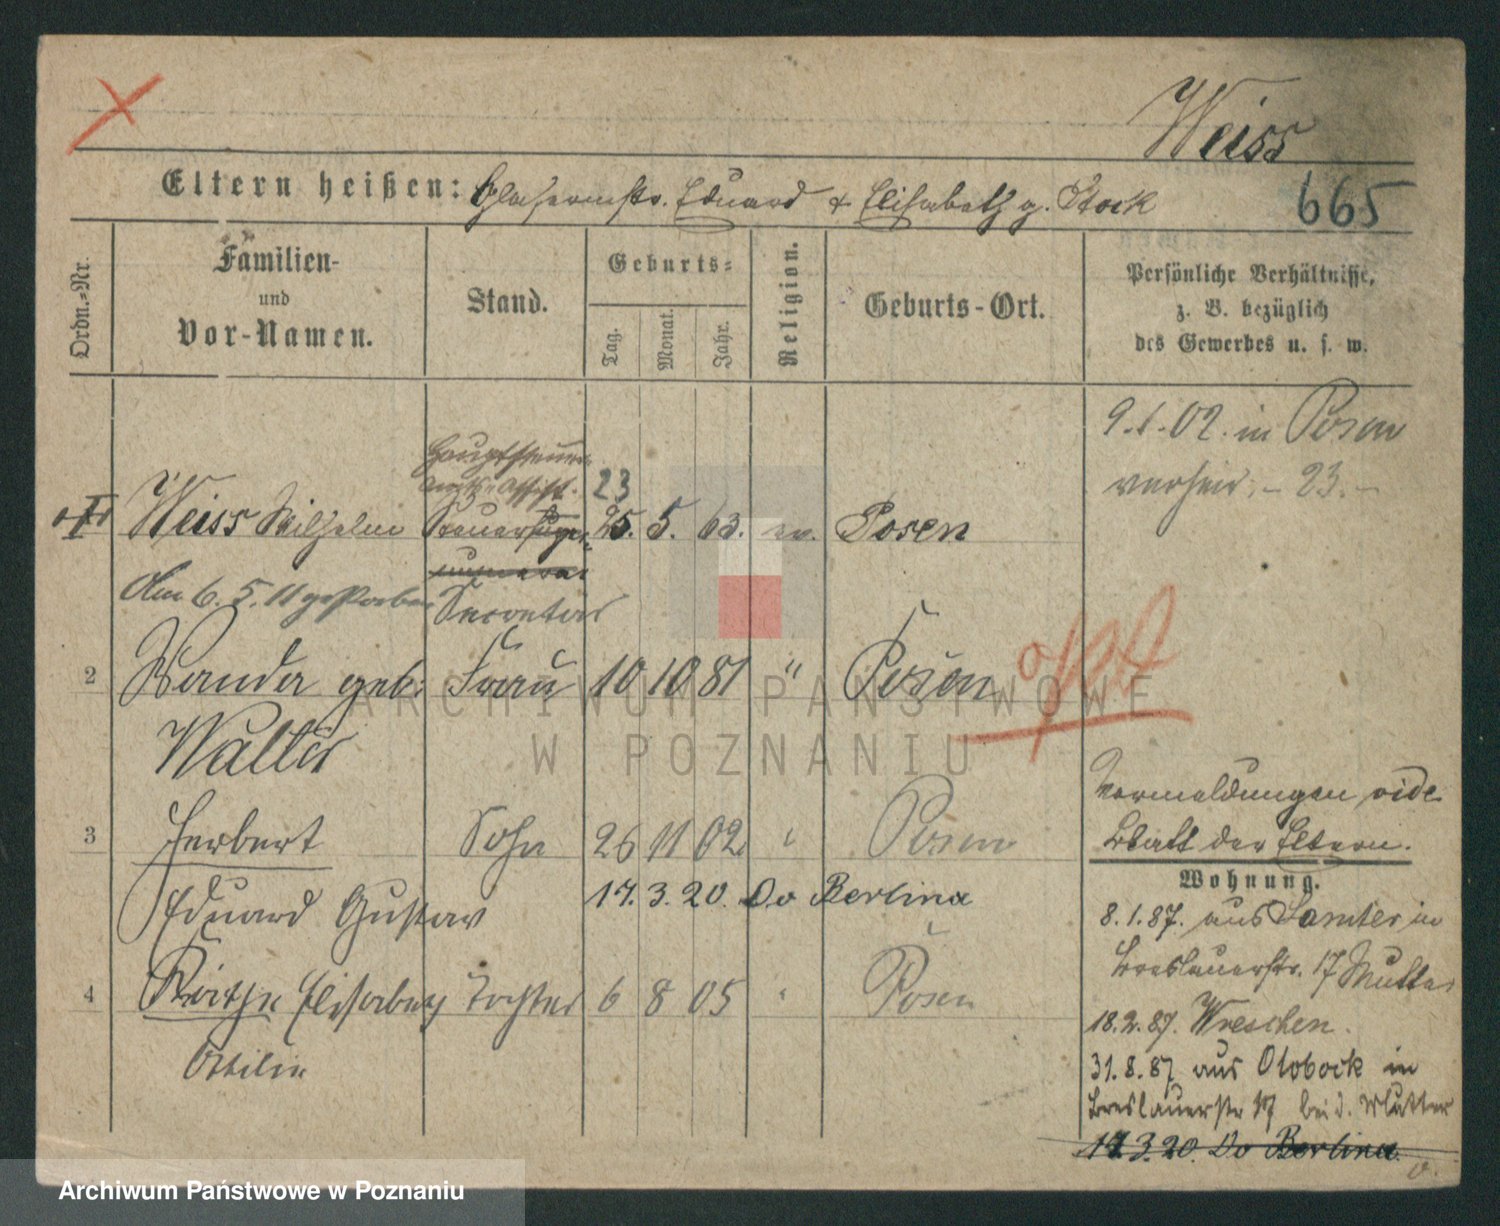 Weiss
Eltern heißen: Glasermstr. Eduard & Elisabeth g. Stock
665
Ordn.-Nr.
Familien-
und
Vor-Namen.
Stand.
Geburts-
Tag.
Monat.
Jahr.
Religion.
Geburts-Ort.
Persönliche Verhältnisse,
z. B. bezüglich
des Gewerbes u. s. w.
9.1.02. in Posen
verheir. - 23. -
Hauptsteuer
amts-Assist.
23
Weiss Wilhelm Steuer 25. 5. 63. ev. Posen
Am 6.5.11 gestorben
Secretär
2 Wanda geb. Frau 10 10 81 " Posen
Walter
3 Herbert Sohn 26 11 02 " Posen
17. 3. 20. Do Berlina
Eduard Gustav
4 Käthe Elisabeth Tochter 6 8 05 " Posen
Ottilie
Vormeldungen vide
Blatt der Eltern.
Wohnung.
8.1.87. aus Samter in
Breslauerstr. 17 Mutter
18.2.87. Wreschen.
31.8.87 aus Otobock in
Breslauerstr 17 bei d. Mutter
17.3.20. Do Berlina
ARCHIWUM PAŃSTWOWE
W POZNANIU
Archiwum Państwowe w Poznaniu